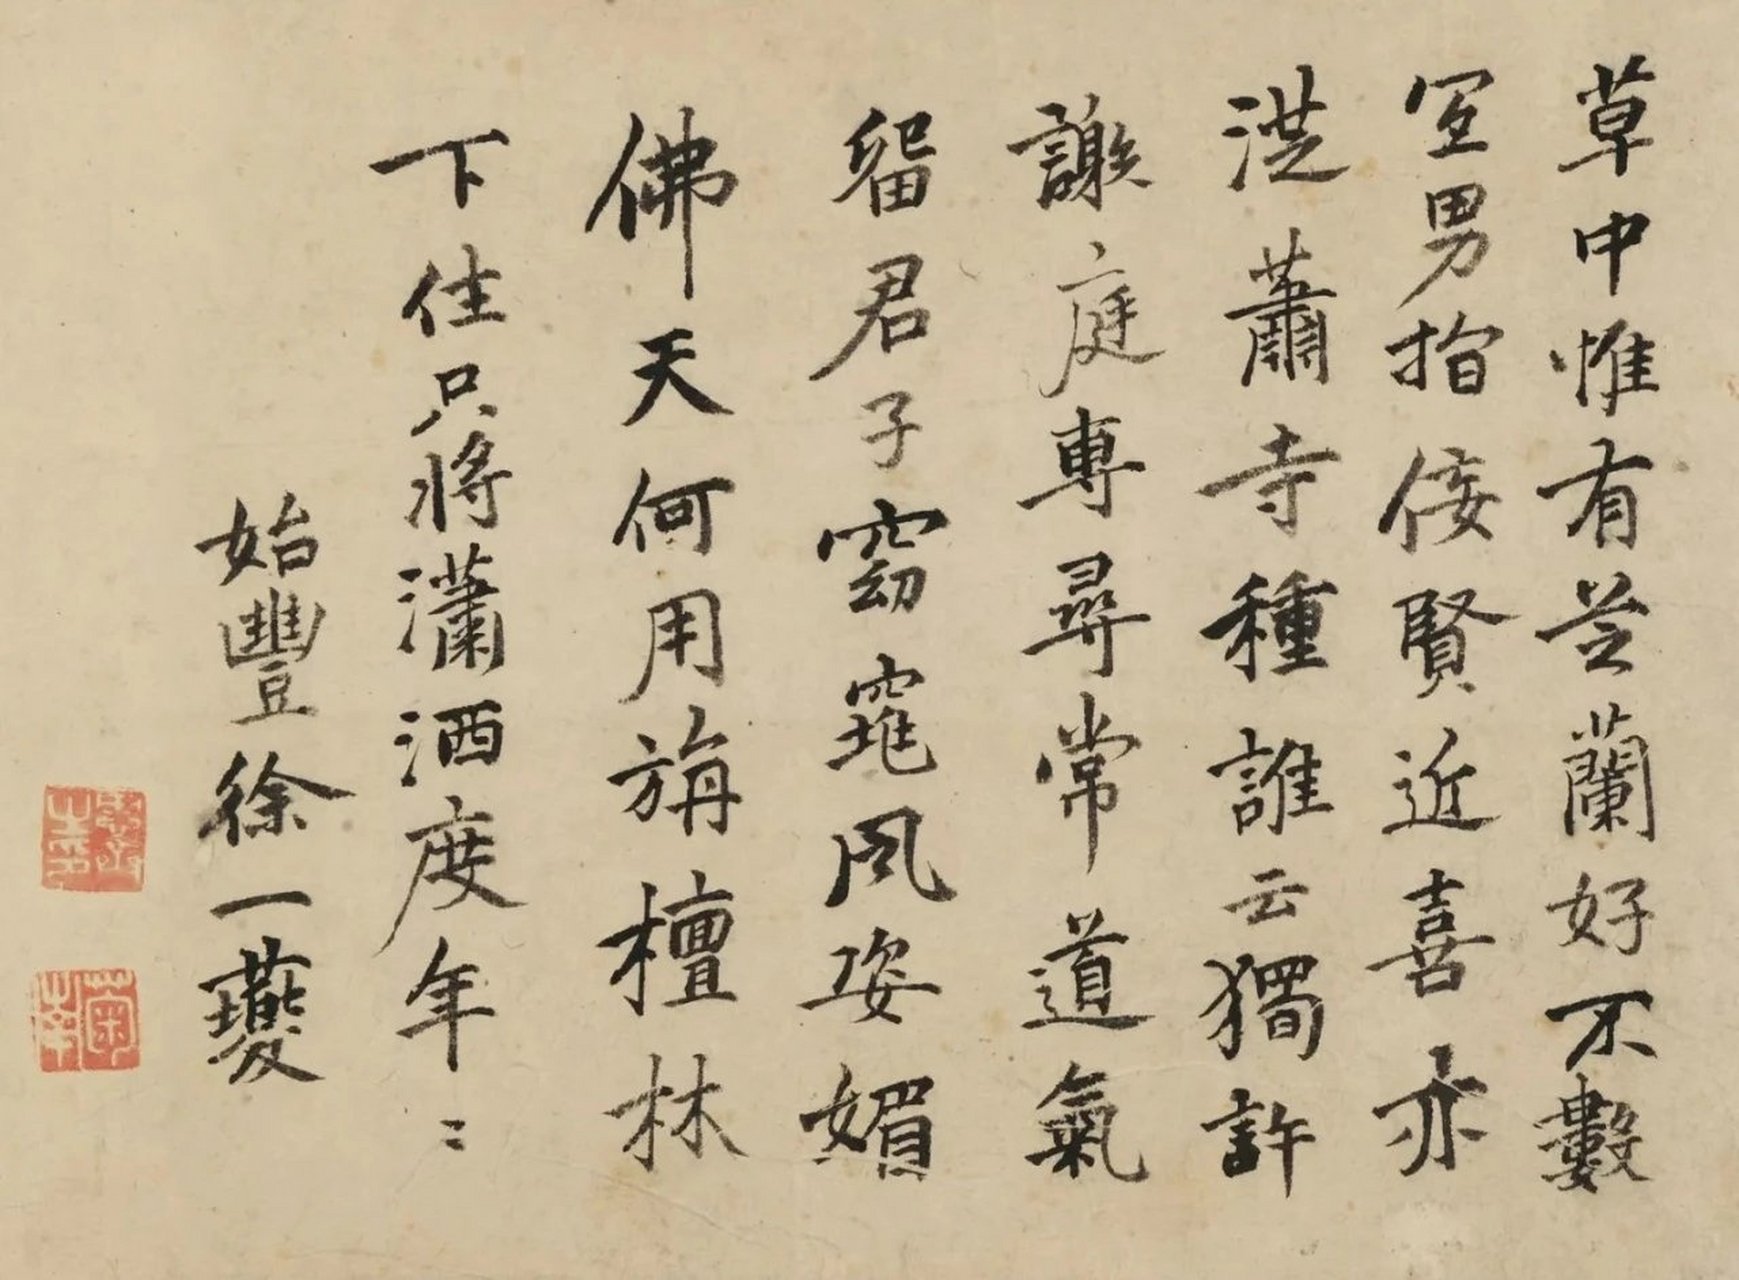 草中惟有芝蘭好不數
宜男指佞賢近喜亦
洪蕭寺種誰云獨許
謝庭專尋常道氣
留君子窈窕風姿媚
佛天何用旃檀林
下住只將瀟洒度年〻
始豐徐一夔